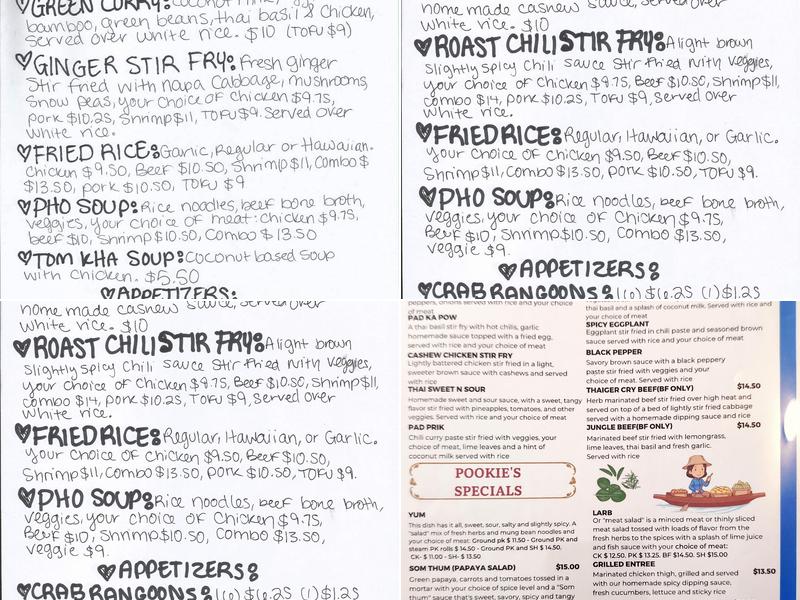 GREEN CURRY: Coconut
bamboo, green beans, thai basil & Chicken,
served over white rice. $10 (TOFU $9)
GINGER STIR FRY: Fresh ginger
Stir fried with napa Cabbage, mushrooms,
Snow peas, your choice of Chicken $9.75,
pork $10.25, Shrimp $11, TOFU $9. Served over
white rice.
FRIED RICE: Garlic, Regular or Hawaiian.
Chicken $9.50, Beef $10.50, Shrimp $11, Combo $
$13.50, pork $10.50, TOFU $9
PHO SOUP: Rice noodles, beef bone broth,
veggies, your choice of meat: chicken $9.75,
beef $10, Shrimp $10.50, Combo $13.50
TOM KHA SOUP: Coconut based Soup
with Chicken. $5.50
APPETIZERS:
home made cashew sauce, served over
white rice. $10
ROAST CHILI STIR FRY: A light brown
Slightly Spicy Chili sauce Stir Fried with veggies,
your choice of Chicken $9.75, Beef $10.50, Shrimp $11,
combo $14, pork $10.25, TOFU $9, Served over
white rice.
FRIED RICE: Regular, Hawaiian, or Garlic.
Your Choice of Chicken $9.50, Beef $10.50,
Shrimp $11, Combo $13.50, Pork $10.50, TOFU $9.
PHO SOUP: Rice noodles, beef bone broth,
veggies, your choice of Chicken $9.75,
Beef $10, Shrimp $10.50, Combo $13.50,
veggie $9.
APPETIZERS:
CRAB RANGOONS: (6) $6.25 (1) $1.25
home made cashew sauce, served over
white rice. $10
ROAST CHILI STIR FRY: A light brown
Slightly Spicy Chili sauce Stir Fried with veggies,
your choice of Chicken $9.75, Beef $10.50, Shrimp $11,
combo $14, pork $10.25, TOFU $9, Served over
white rice.
FRIED RICE: Regular, Hawaiian, or Garlic.
Your Choice of Chicken $9.50, Beef $10.50,
Shrimp $11, Combo $13.50, Pork $10.50, TOFU $9.
PHO SOUP: Rice noodles, beef bone broth,
veggies, your choice of Chicken $9.75,
Beef $10, Shrimp $10.50, Combo $13.50,
veggie $9.
APPETIZERS:
CRAB RANGOONS: (6) $6.25 (1) $1.25
peppers, onions served with rice and your choice
of meat
PAD KA POW
A thai basil stir fry with hot chilis, garlic
homemade sauce topped with a fried egg,
served with rice and your choice of meat
CASHEW CHICKEN STIR FRY
Lightly battered chicken stir fried in a light,
sweeter brown sauce with cashews and served
with rice
THAI SWEET N SOUR
Homemade sweet and sour sauce, with a sweet, tangy
flavor stir fried with pineapples, tomatoes, and other
veggies. Served with rice and your choice of meat.
PAD PRIK
Chili curry paste stir fried with veggies, your
choice of meat, lime leaves and a hint of
coconut milk served with rice
POOKIE'S
SPECIALS
YUM
This dish has it all, sweet, sour, salty and slightly spicy. A
"salad" mix of fresh herbs and mung bean noodles and
your choice of meat: Ground pk $ 11.50 - Ground PK and
steam PK rolls $ 14.50 - Ground PK and SH $ 14.50,
CK- $ 11.00 - SH- $ 13.50
SOM THUM (PAPAYA SALAD) $15.00
Green papaya, carrots and tomatoes tossed in a
mortar with your choice of spice level and a "Som
thum" sauce that's sweet, savory, spicy and tangy
thai basil and a splash of coconut milk. Served with rice and
your choice of meat
SPICY EGGPLANT
Eggplant stir fried in chili paste and seasoned brown
sauce served with rice and your choice of meat
BLACK PEPPER
Savory brown sauce with a black peppery
paste stir fried with veggies and your
choice of meat. Served with rice
THAIGER CRY BEEF(BF ONLY) $14.50
Herb marinated beef stir fried over high heat and
served on top of a bed of lightly stir fried cabbage
served with a homemade dipping sauce and rice
JUNGLE BEEF(BF ONLY) $14.50
Marinated beef stir fried with lemongrass,
lime leaves, thai basil and fresh garlic.
Served with rice
LARB
Or "meat salad" is a minced meat or thinly sliced
meat salad tossed with loads of flavor from the
fresh herbs to the spices with a splash of lime juice
and fish sauce with your choice of meat:
CK $ 12.50, PK $ 13.25, BF $ 14.50, SH $ 15.00
GRILLED ENTREE $13.50
Marinated chicken thigh, grilled and served
with our homemade spicy dipping sauce,
fresh cucumbers, lettuce and sticky rice